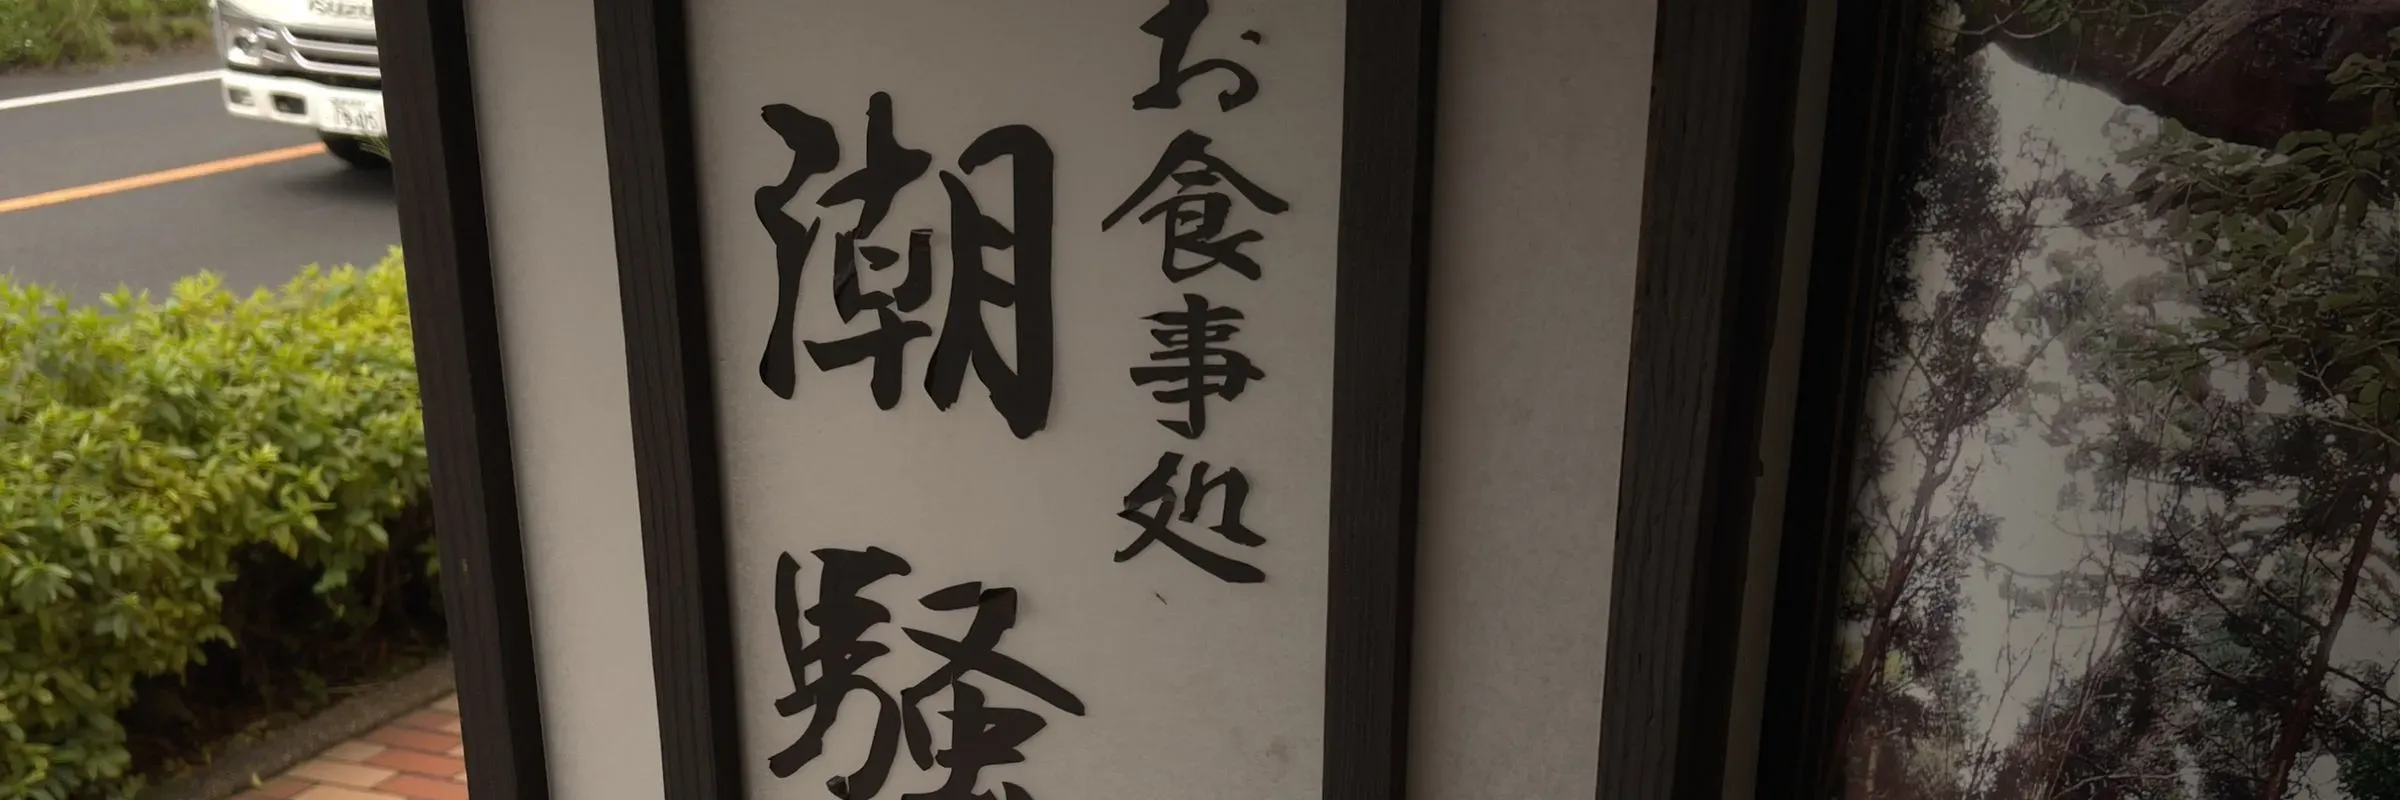 お食事処
潮騒
ISUZU